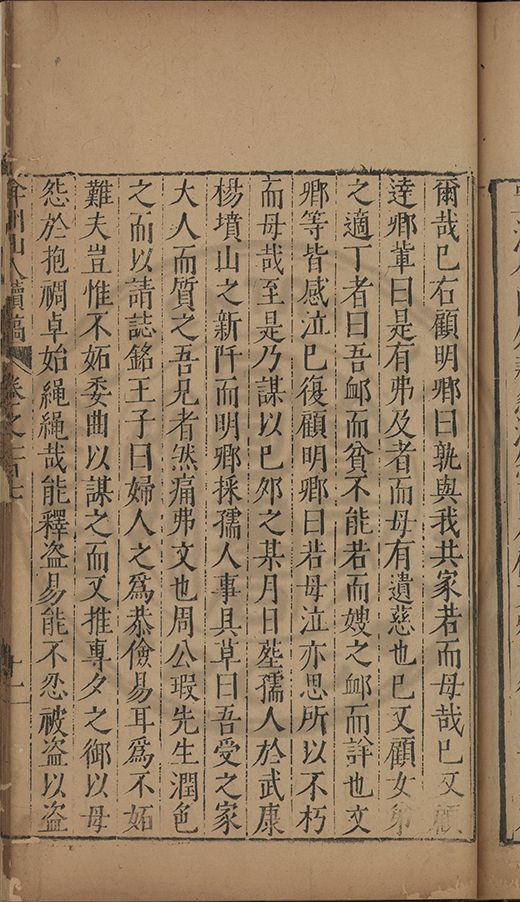 爾哉已右顧明卿曰孰與我共家若而母哉已又顧
逹卿輩曰是有弗及者而母有遺慈也已又顧女弟
之適丁者曰吾卹而貧不能若而嫂之卹而詳也文
卿等皆感泣已復顧明卿曰若母泣亦思所以不朽
而母哉至是乃謀以巳夘之某月日塟孺人於武康
楊墳山之新阡而明卿採孺人事具草曰吾受之家
大人而質之吾兄者然痛弗文也周公瑕先生潤色
之而以請誌銘王子曰婦人之爲恭儉易耳爲不妬
難夫豈惟不妬委曲以謀之而又推專夕之御以母
怨於抱裯卓始繩繩哉能釋盗易能不忍被盗以盗
弇州山人續稿 卷之一百十
十一